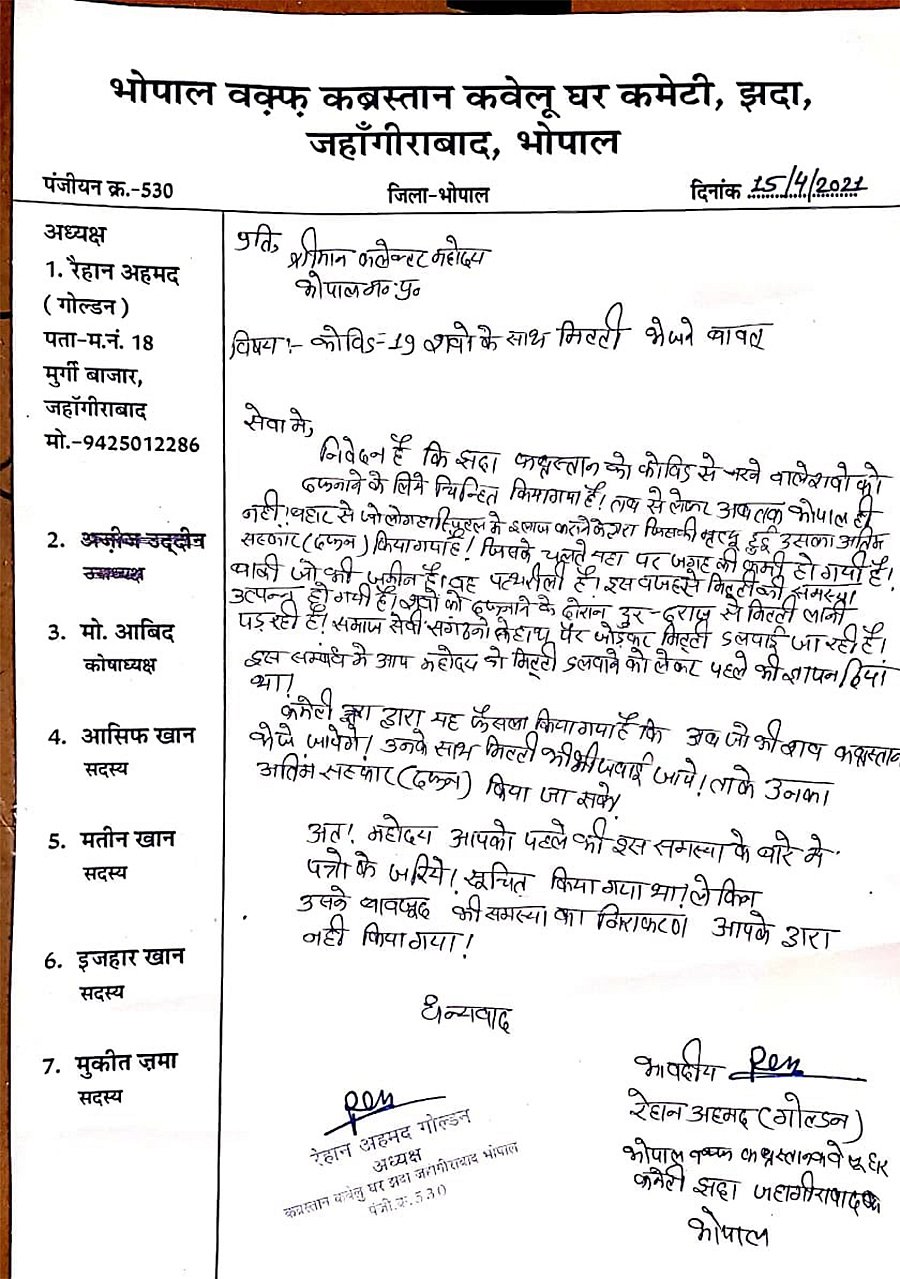 भोपाल वक़्फ़ कब्रस्तान कवेलू घर कमेटी, झदा,
जहाँगीराबाद, भोपाल
पंजीयन क्र.-530
जिला-भोपाल
दिनांक 15/4/2021
अध्यक्ष
1. रैहान अहमद
( गोल्डन )
पता-म.नं. 18
मुर्गी बाजार,
जहॉगीराबाद
मो.-9425012286
2. अज़ीज उद्दीन
उपाध्यक्ष
3. मो. आबिद
कोषाध्यक्ष
4. आसिफ खान
सदस्य
5. मतीन खान
सदस्य
6. इजहार खान
सदस्य
7. मुकीत ज़मा
सदस्य
प्रति,
श्रीमान कलेक्टर महोदय
भोपाल म॰प्र॰
विषय:- कोविड-19 शवो के साथ मिट्टी भेजने बाबत
सेवा मे,
निवेदन है कि झदा कब्रस्तान को कोविड से मरने वाले शवो को
दफनाने के लिये चिन्हित किया गया है। तब से लेकर अब तक भोपाल ही
नही। बहार से जो लोग हास्पिटल मे इलाज कराने के लिये जिसकी मृत्यु हुई उसका अतिम
सस्कार (दफन) किया गया है। जिसके चलते यहा पर जगह की कमी हो गयी है।
बाकी जो भी जमीन है। वह पथरीली है। इस वजह से मिट्टी की समस्या
उत्पन्न हो गयी है। शवो को दफनाने के दौरान दुर-दराज से मिट्टी लानी
पड़ रही है। समाज सेवी सगठनो के हाथ पैर जोड़कर मिट्टी डलवाई जा रही है।
इस सम्बंध मे आप महोदय को मिट्टी डलवाने को लेकर पहले भी ज्ञापन दिया
था।
कमेटी द्वारा यह फैसला किया गया है कि अब जो भी शव कब्रस्तान
भेजे जायेगे। उनके साथ मिट्टी भी भिजवाई जाये। ताके उनका
अतिम सस्कार (दफन) किया जा सके।
अत। महोदय आपको पहले भी इस समस्या के बारे मे
पत्रो के जरिये। सूचित किया गया था। लेकिन
उसके बावजूद भी समस्या का निराकरण आपके द्वारा
नही किया गया।
धन्यवाद
भवदीय
रेहान अहमद (गोल्डन)
भोपाल वक्फ कब्रस्तान कवेलू घर
कमेटी झदा जहागीराबाद
भोपाल
रेहान अहमद गोल्डन
अध्यक्ष
कब्रस्तान कवेलु घर झदा जहागीराबाद भोपाल
पंजी.क्र.530